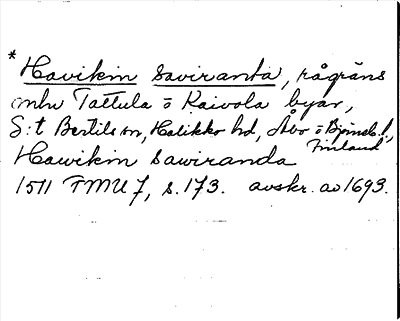 * Havikin saviranta, rågräns
mlm Tattula o Kaivola byar,
S:t Bertils sn, Halikko hd, Åbo o Björneb. l.,
Finland
Hawikin sawiranda
1511 FMU 7, s. 173. avskr. av 1693.